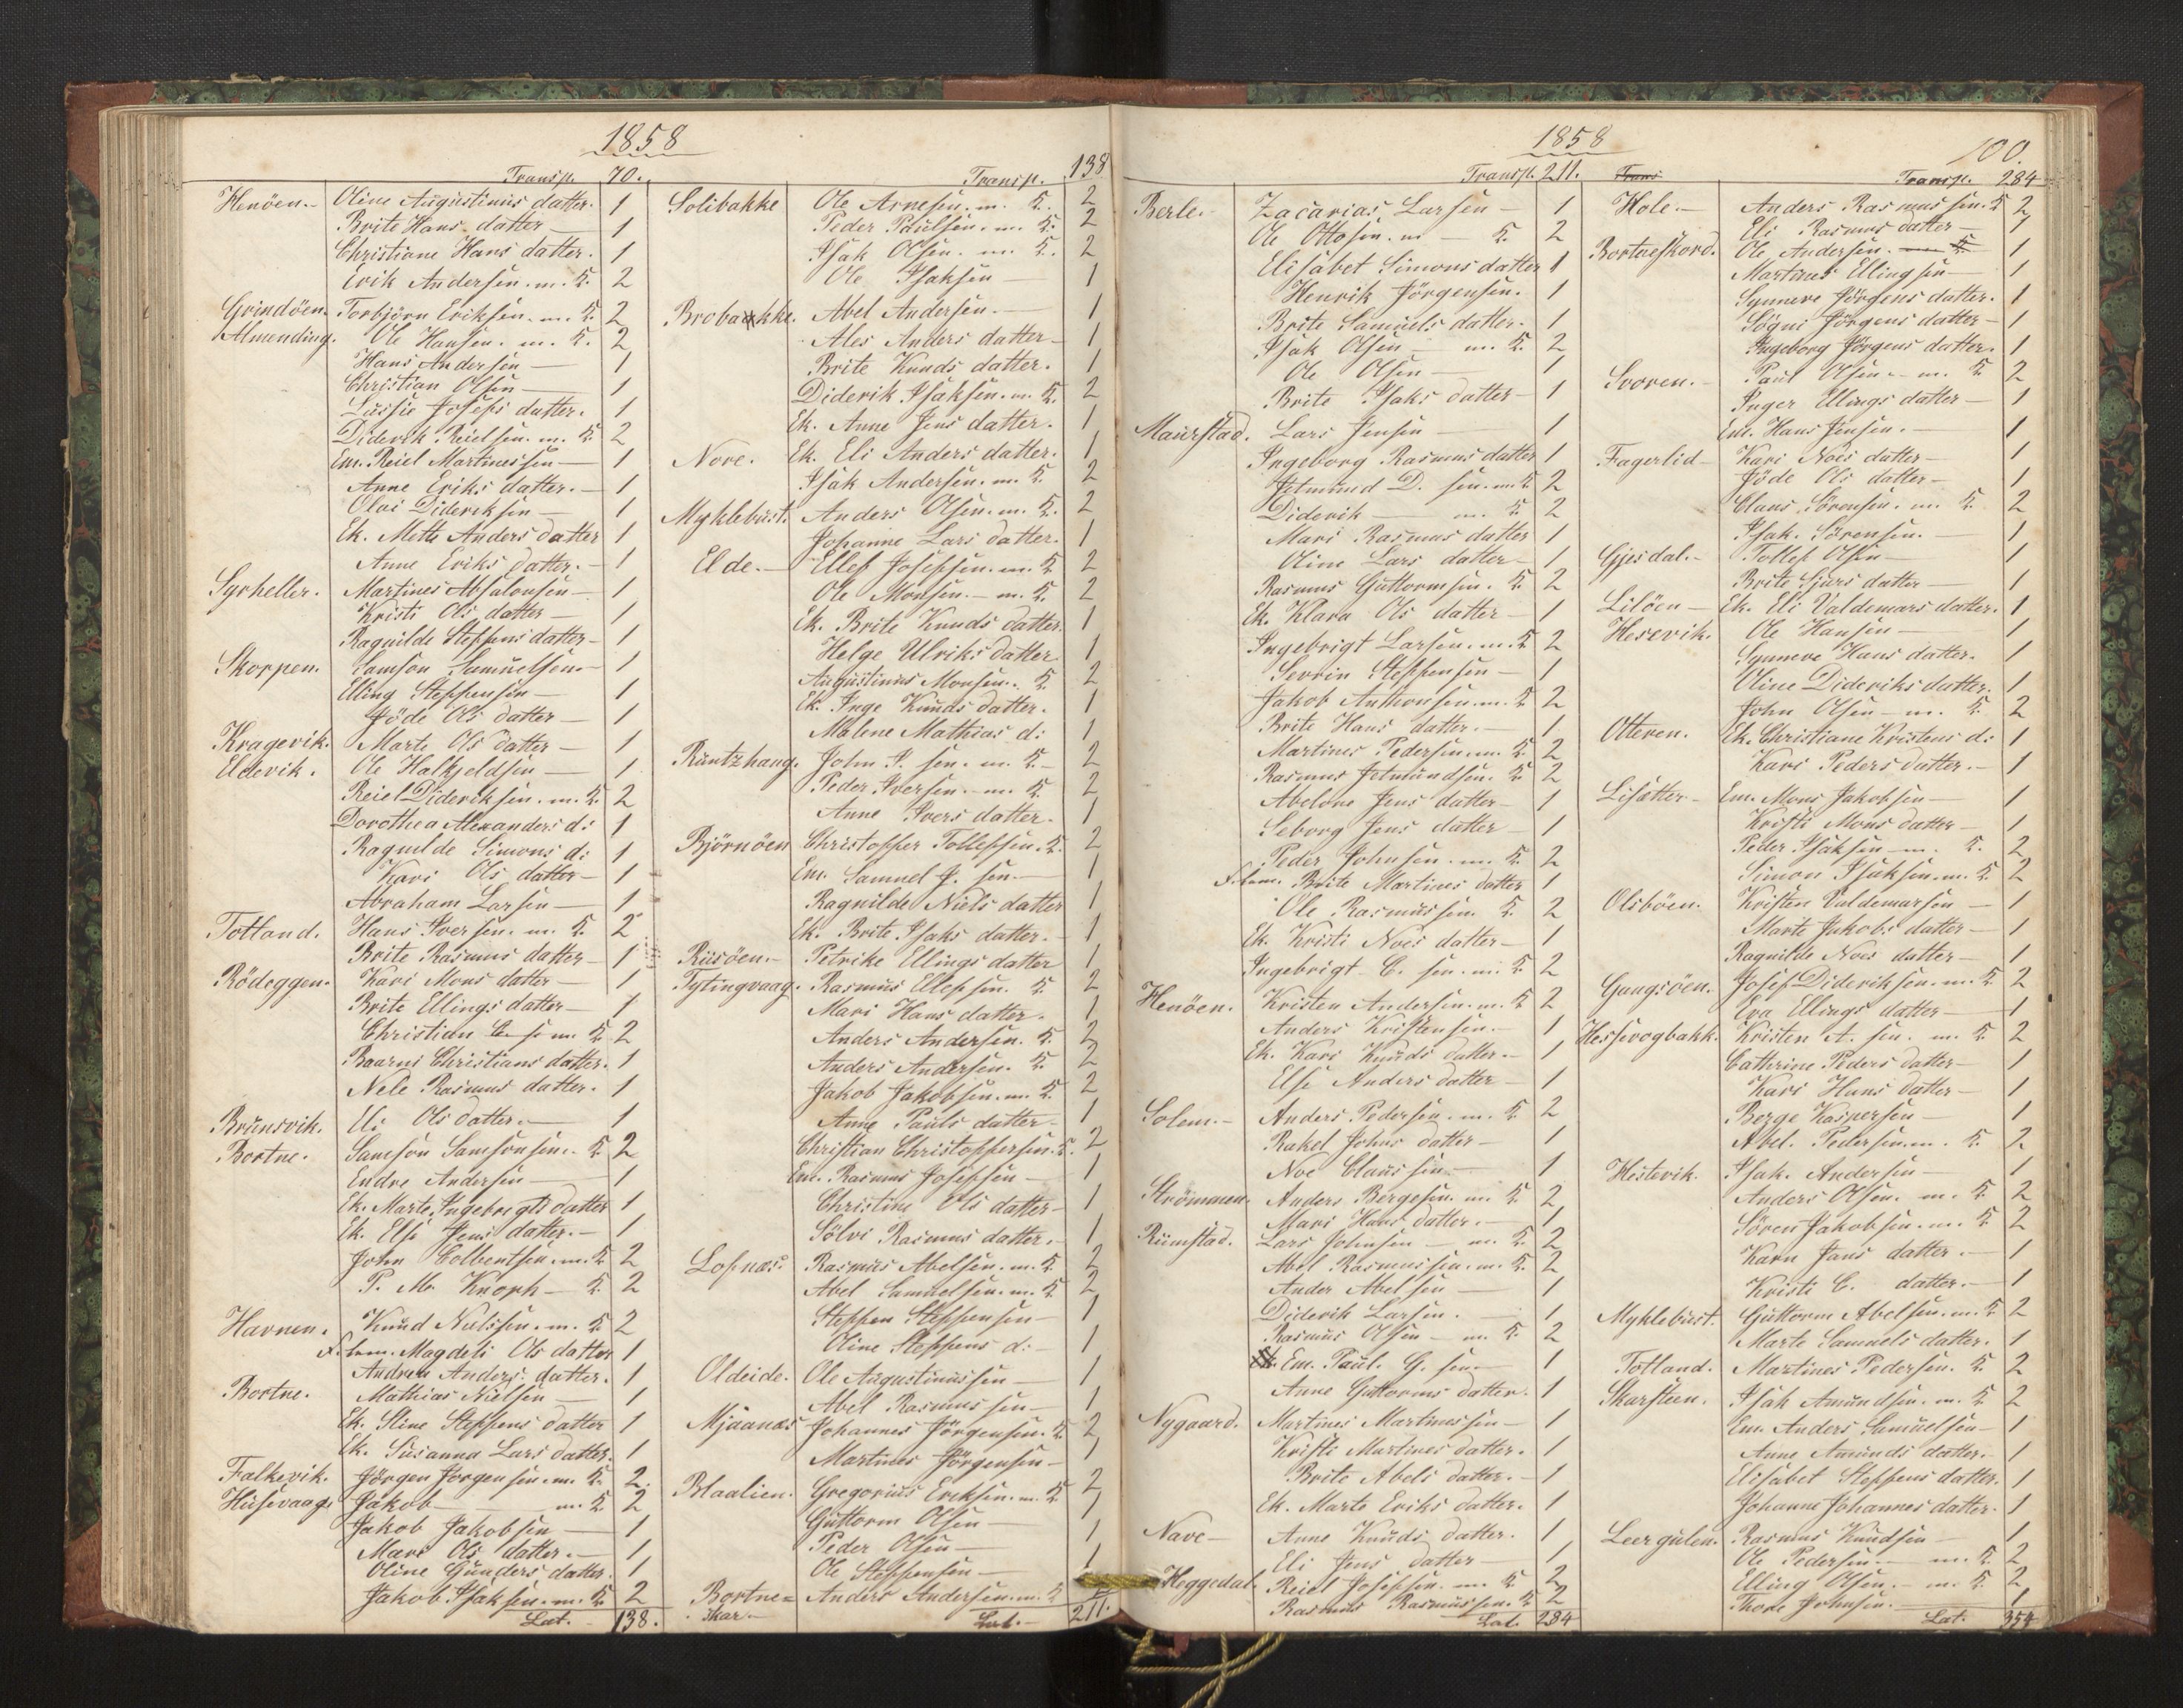 1858
Transp. 70.
Henöen. Oline Augustinus datter. 1
Brite Hans datter 1
Christiane Hans datter. 1
Erik Andersen. m. K. 2
Grindöen. Torbjörn Eriksen. m. K. 2
Almending. Ole Hansen. m. K. 2
Hans Andersen 1
Christian Olsen 1
Lussie Josefs datter. 1
Diderik Reielsen. m. K. 2
Em. Reiel Martinessen 1
Anne Eriks datter. 1
Olai Dideriksen 1
Ek. Mette Anders datter 1
Anne Eriks datter. 1
Syrheller. Martines Absalonsen 1
Kristi Ols datter 1
Ragnilde Steffens datter 1
Skorpen. Samson Samuelsen 1
Elling Steffensen 1
Jöde Ols datter 1
Kragevik. Marte Ols datter 1
Eldevik. Ole Halkjeldsen 1
Reiel Dideriksen. m. K. 2
Dorothea Alexanders d: 1
Ragnilde Simons d: 1
Kari Ols datter 1
Abraham Larsen 1
Totland. Hans Iversen. m. K. 2
Brite Rasmus datter 1
Rödeggen. Kari Mons datter 1
Brite Ellings datter 1
Christian C. sen m. K. 2
Baarni Christians datter. 1
Nele Rasmus datter. 1
Brunsvik. Eli Ols datter. 1
Bortne. Samson Samsonsen. K. 2
Endre Andersen 1
Ek. Marte Ingebrigts datter 1
Ek. Else Jens datter. 1
John Colbentsen. m. K. 2
P. M. Knoph K. 2
Havnen. Knud Nielssen. m. K. 2
F. lem. Magdeli Ols datter 1
Andrea Anders. datter. 1
Bortne. Mathias Nielsen 1
Ek. Stine Steffens datter 1
Ek. Susanna Lars datter. 1
Falkevik. Jörgen Jörgensen. m. K. 2.
Husevaag. Jakob m. K. 2
Jakob Jakobsen 1
Mari Ols datter. 1
Oline Gunders datter. 1
Jakob Isaksen. m. K. 2
Lat. 138.
Transp. 138
Solibakke Ole Arnesen. m. K. 2
Peder Paulsen. m. K. 2
Isak Olsen. m. K. 2
Ole Isaksen 1
Brobakke. Abel Andersen. 1
Ales Anders datter 1
Brite Knuds datter. 1
Diderik Isaksen. m. K. 2
Ek. Anne Jens datter. 1
Nore. Ek. Eli Anders datter. 1
Isak Andersen. m. K. 2
Myklebust. Anders Olsen. m. K. 2
Johanne Lars datter. 1
Elde. Ellef Josefsen. m. K. 2
Ole Monsen. m. K. 2
Ek. Brite Knuds datter. 1
Helge Ulriks datter 1
Augustinus Monsen. K. 2
Ek. Inge Knuds datter. 1
Malene Mathias d: 1
Runtzhaug. John I. sen. m. K. 2
Peder Iversen. m. K. 2
Anne Ivers datter. 1
Björnöen Christoffer Tollefsen. K. 2
Em. Samuel J. sen. 1
Ragnilde Niels datter 1
Ek. Brite Isaks datter. 1
Risöen. Petrike Ellings datter 1
Tytingvaag. Rasmus Ellefsen. K. 2
Mari Hans datter. 1
Anders Andersen. K. 2
Anders Andersen. K. 2
Jakob Jakobsen. m. K. 2
Anne Pauls datter 1
Christian Christoffersen. K. 2
Em. Rasmus Josefsen 1
Christine Ols datter 1
Sölvi Rasmus datter. 1
Lofnæs. Rasmus Abelsen. m. K. 2
Abel Samuelsen. m. K. 2
Steffen Steffensen 1
Oline Steffens d: 1
Oldeide. Ole Augustinussen 1
Abel Rasmussen 1
Mjaanæs Johannes Jörgensen. K. 2
Martines Jörgensen 1
Blaalien. Gregorius Eriksen. m. K. 2
Guttorm Olsen 1
Peder Olsen 1
Ole Steffensen 1
Bortne=skar. Anders Andersen. m. K. 2
Lat. 211.
1858
100.
Transp. 211.
Berle. Zacarias Larsen 1
Ole Ottosen. m K. 2
Elisabet Simons datter 1
Henrik Jörgensen. 1
Brite Samuels datter. 1
Isak Olsen m. K. 2
Ole Olsen 1
Brite Isaks datter 1
Maurstad. Lars Jensen 1
Ingeborg Rasmus datter 1
Jetmund D. sen. m. K. 2
Diderik m. K. 2
Mari Rasmus datter 1
Oline Lars datter 1
Rasmus Guttormsen. K. 2
Ek. Klara Ols datter 1
Ingebrigt Larsen. m. K. 2
Sevrin Steffensen 1
Jakob Anthonsen. m. K. 2
Brite Hans datter. 1
Martines Pedersen. m. K. 2
Rasmus Jetmundsen. K. 2
Abelone Jens datter 1
Seborg Jens datter 1
Peder Johnsen. m. K. 2
F. lem. Brite Martines datter 1
Ole Rasmussen K. 2
Ek. Kristi Noes datter 1
Ingebrigt C. sen. m. K. 2
Henöen. Kristen Andersen. m. K. 2
Anders Kristensen. 1
Ek. Kari Knuds datter. 1
Else Anders datter 1
Solem. Anders Pedersen. m. K. 2
Rakel Johns datter 1
Noe Claussen. 1
Strömmen. Anders Bergesen. m. K. 2
Mari Hans datter. 1
Rimstad. Lars Johnsen m. K. 2
Abel Rasmussen. m. K. 2
Ander Abelsen 1
Diderik Larsen. 1
Rasmus Olsen m. K. 2
Em. Paul. G. sen. 1
Anne Guttorms datter. 1
Nygaard. Martines Martinessen 1
Kristi Martines datter. 1
Brite Abels datter. 1
Ek. Marte Eriks datter. 1
Nave Anne Knuds datter. 1
Eli Jens datter 1
Heggedal. Reiel Josefsen. m. K. 2
Rasmus Rasmussen. K. 2
Lat. 284
Trans
Transp. 284
Hole. Anders Rasmussen. K. 2
Eli Rasmus datter 1
Bortneskord. Ole Andersen. m K 1
Martines Ellingsen 1
Synneve Jörgens datter. 1
Sögni Jörgens datter 1
Ingeborg Jörgens datter. 1
Svoren. Paul Olsen m. K. 2
Inger Ellings datter 1
Em. Hans Jensen. 1
Fagerlid Kari Noes datter 1
Jöde Ols datter 1
Claus Sörensen. m. K. 2
Isak. Sörensen. 1
Gjesdal. Tollef Olsen 1
Brite Sjurs datter 1
Lilöen Ek. Eli Valdemars datter. 1
Hesevik. Ole Hansen 1
Synneve Hans datter. 1
Oline Dideriks datter. 1
John Olsen m. K. 2
Otteren. Ek. Christiane Kristens d: 1
Kari Peders datter. 1
Lisætter Em. Mons Jakobsen 1
Kristi Mons datter 1
Peder Isaksen m. K. 2
Simon Isaksen. m. K. 2
Olsböen. Kristen Valdemarsen 1
Marte Jakobs datter 1
Ragnilde Noes datter 1
Gangsöen. Josef Dideriksen. m. K. 2
Eva Ellings datter 1
Hessevogbakk. Kristen A. sen. m. K. 2
Cathrine Peders datter 1
Kari Hans datter 1
Berge Kaspersen 1
Abel. Pedersen. m. K. 2
Hestevik. Isak. Andersen 1
Anders Olsen. m. K. 2
Sören Jakobsen. m. K. 2
Karn Jans datter. 1
Kristi C. datter. 1
Myklebust. Guttorm Abelsen. m. K. 2
Marte Samuels datter. 1
Totland. Martines Pedersen. K. 2
Skarsteen. Isak Amundsen. m. K. 2
Em. Anders Samuelsen 1
Anne Amunds datter. 1
Elisabet Steffens datter. 1
Johanne Johannes datter. 1
Leergulen. Rasmus Knudsen 1
Ole Pedersen. m. K. 2
Elling Olsen. m. K. 2
Thore Johnsen. 1
Lat. 354